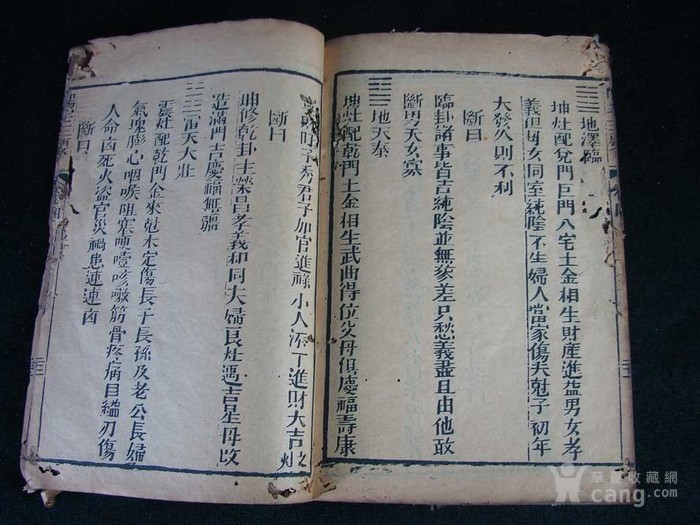 地澤臨
坤灶配兌門巨門八宅土金相生財産進益男女孝
義但母女同室純陰不生婦人當家傷夫尅子初年
大發久則不利
斷曰
臨卦諸事皆吉純陰並無貌差只愁義盡且由他敢
斷男夭女寡
地天泰
坤灶配乾門土金相生武曲得位父母俱慶福壽康
時子秀君子加官進祿小人添丁進財大吉之灶
斷曰
坤修乾卦主榮昌孝義和同夫婦良灶遇吉星毋改
造滿門吉慶福無疆
雷天大壯
震灶配乾門金來尅木定傷長子長孫及老公長婦
氣塊膨心咽喉阻塞哽噎咳嗽筋骨疼痛目縊刃傷
人命凶死火盜官災禍患連連凶
斷曰
華夏收藏網
cang.com